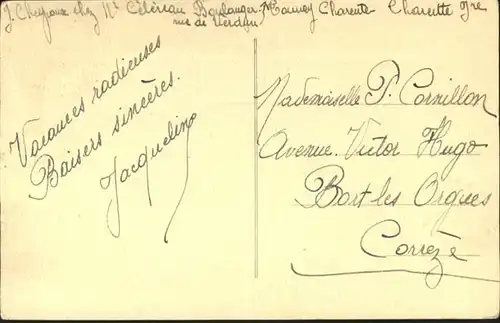 J. chez Mr Célérian Boulanger Tonnay Charente Charente Infre
rue de Verdun
Vacances radieuses
Baisers sincères.
Jacqueline
Mademoiselle P. Cornillon
Avenue Victor Hugo
Bort les Orgues
Corrèze